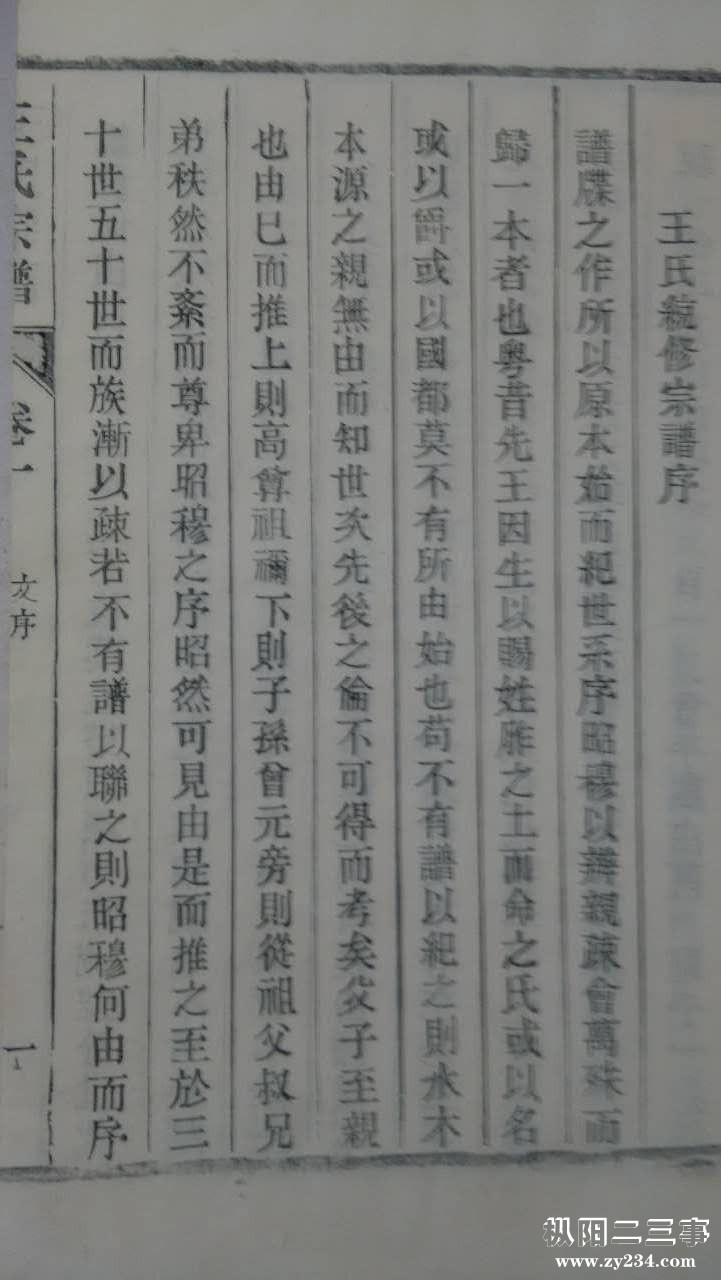 王氏統修宗譜序
譜牒之作所以原本始而紀世系序昭穆以辨親疎會萬殊而
歸一本者也粵昔先王因生以賜姓胙之土而命之氏或以名
或以爵或以國都莫不有所由始也苟不有譜以紀之則水木
本源之親無由而知世次先後之倫不可得而考矣父子至親
也由已而推上則高曾祖禰下則子孫曾元旁則從祖父叔兄
弟秩然不紊而尊卑昭穆之序昭然可見由是而推之至於三
十世五十世而族漸以疎若不有譜以聯之則昭穆何由而序
王氏宗譜 卷一 文序 一
枞阳二三事
www.zy234.com